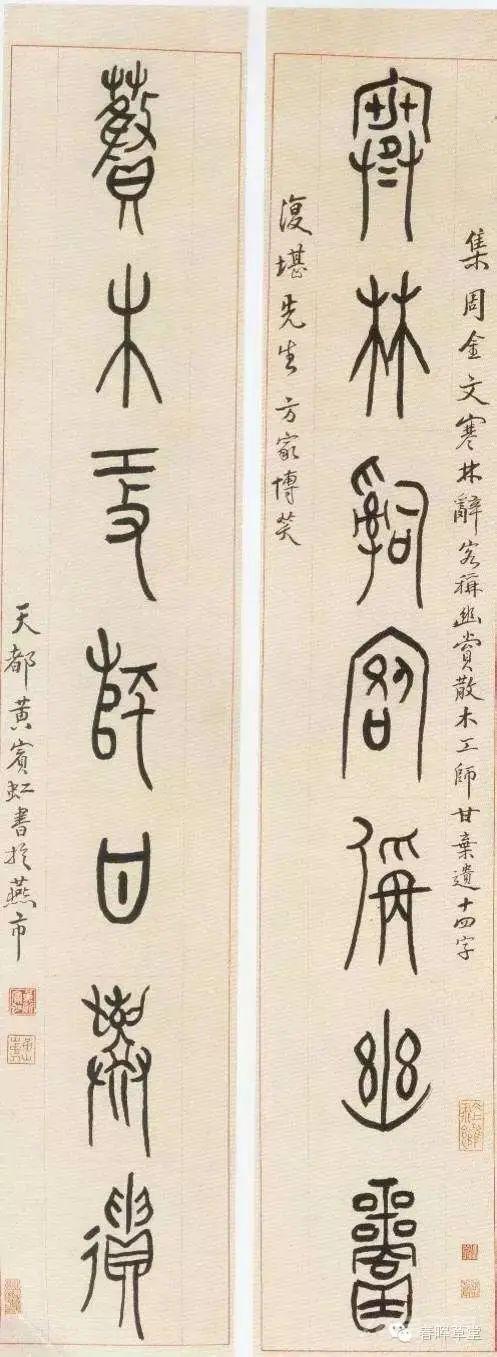 集周金文寒林辭客稱幽賞散木工師甘棄遺十四字
寒林辭客稱幽賞
復堪先生方家博笑
散木工師甘棄遺
天都黃賓虹書於燕市
春晖草堂